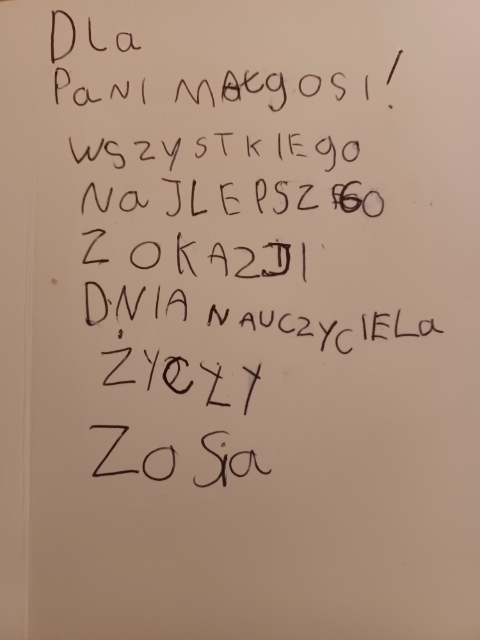 DLa
PaNI MAŁgOSI!
WSZYSTKIEgO
NaJLEPSZEGO
Z OKAZJI
DNIA NAUCZYCIELa
ŻYCZY
ZOSia